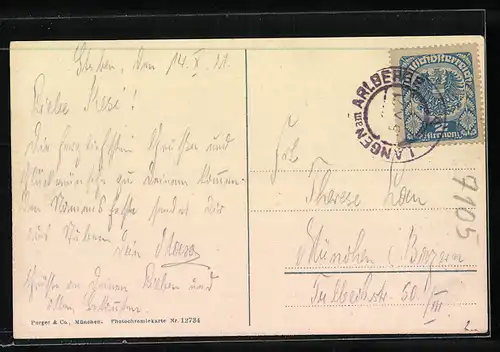 Stuben, den 14. X. 21.
Liebe Resi!
Die herzlichsten Grüße und
Glückwünsche zu Deinem kommen-
den Namensfeste sendet Dir
aus Stuben Dein
Grüße an Deinen Lieben und
allen Bekannten.
Purger & Co., München. Photochromiekarte Nr. 12734
LANGEN am ARLBERG
Deutschösterreich
Kronen
Frl.
Therese
München (Bayern
Tulbeckstr. 50/III
7105